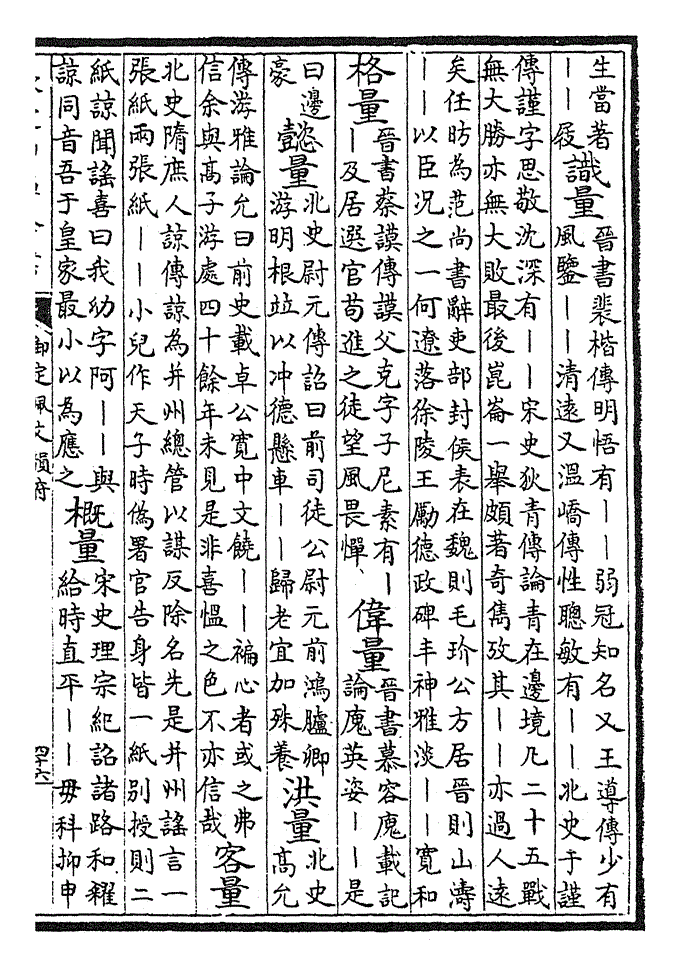 生當著
——屐
識量
晉書裴楷傳明悟有——弱冠知名又王導傳少有
風鑒——清遠又溫嶠傳性聰敏有——北史于謹
傳謹字思敬沈深有——宋史狄青傳論青在邊境凡二十五戰
無大勝亦無大敗最後崑崙一舉頗著奇雋攷其——亦過人遠
矣任昉為范尚書辭吏部封侯表在魏則毛玠公方居晉則山濤
——以臣況之一何遼落徐陵王勵德政碑丰神雅淡——寛和
格量
晉書蔡謨傳謨父克字子尼素有—
—及居選官苟進之徒望風畏憚
偉量
晉書慕容廆載記
論廆英姿——是
曰邊
豪
懿量
北史尉元傳詔曰前司徒公尉元前鴻臚卿
游明根竝以冲德懸車——歸老宜加殊養
洪量
北史
高允
傳游雅論允曰前史載卓公寛中文饒——褊心者或之弗
信余與高子游處四十餘年未見是非喜慍之色不亦信哉
客量
北史隋庶人諒傳諒為并州總管以謀反除名先是并州謠言一
張紙兩張紙——小兒作天子時偽署官告身皆一紙別授則二
紙諒聞謠喜曰我幼字阿——與
諒同音吾于皇家最小以為應之
概量
宋史理宗紀詔諸路和糴
給時直平——毋科抑申
御定佩文韻府
四十六